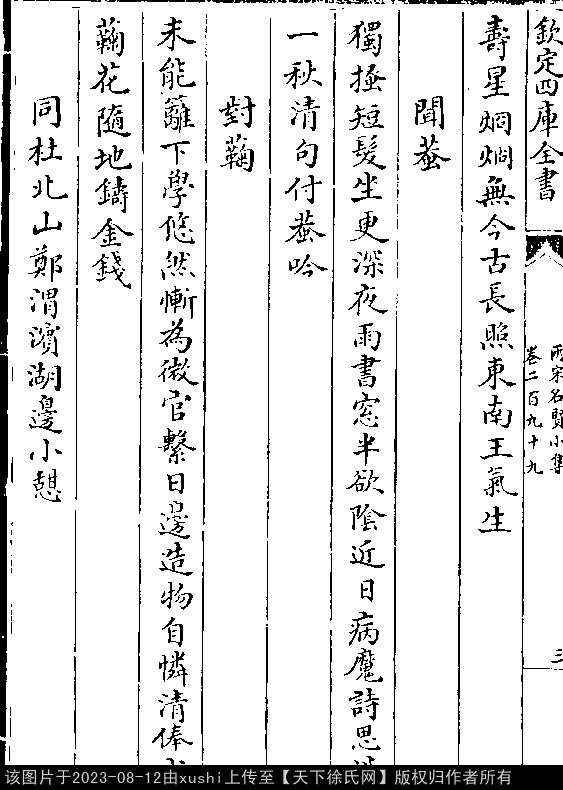 欽定四庫全書
兩宋名賢小集
卷二百九十九
三
壽星烱烱無今古長照東南王氣生
聞蛩
獨搔短髮坐更深夜雨書窓半欲陰近日病魔詩思
一秋清句付蛩吟
對鞠
未能籬下學悠然慚為微官繫日邊造物自憐清俸
鞠花隨地鑄金錢
同杜北山鄭渭濱湖邊小憩
该图片于2023-08-12由xushi上传至【天下徐氏网】版权归作者所有